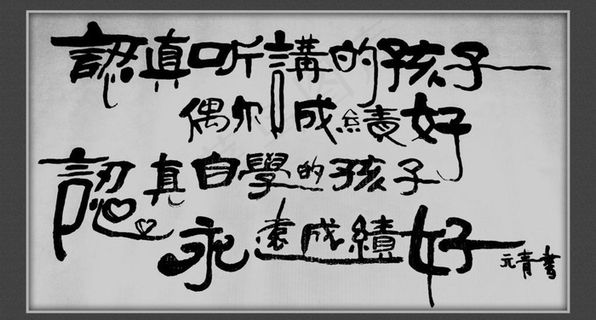 認真听講的孩子
偶尔成績好
認真自學的孩子
永遠成績好
元青書